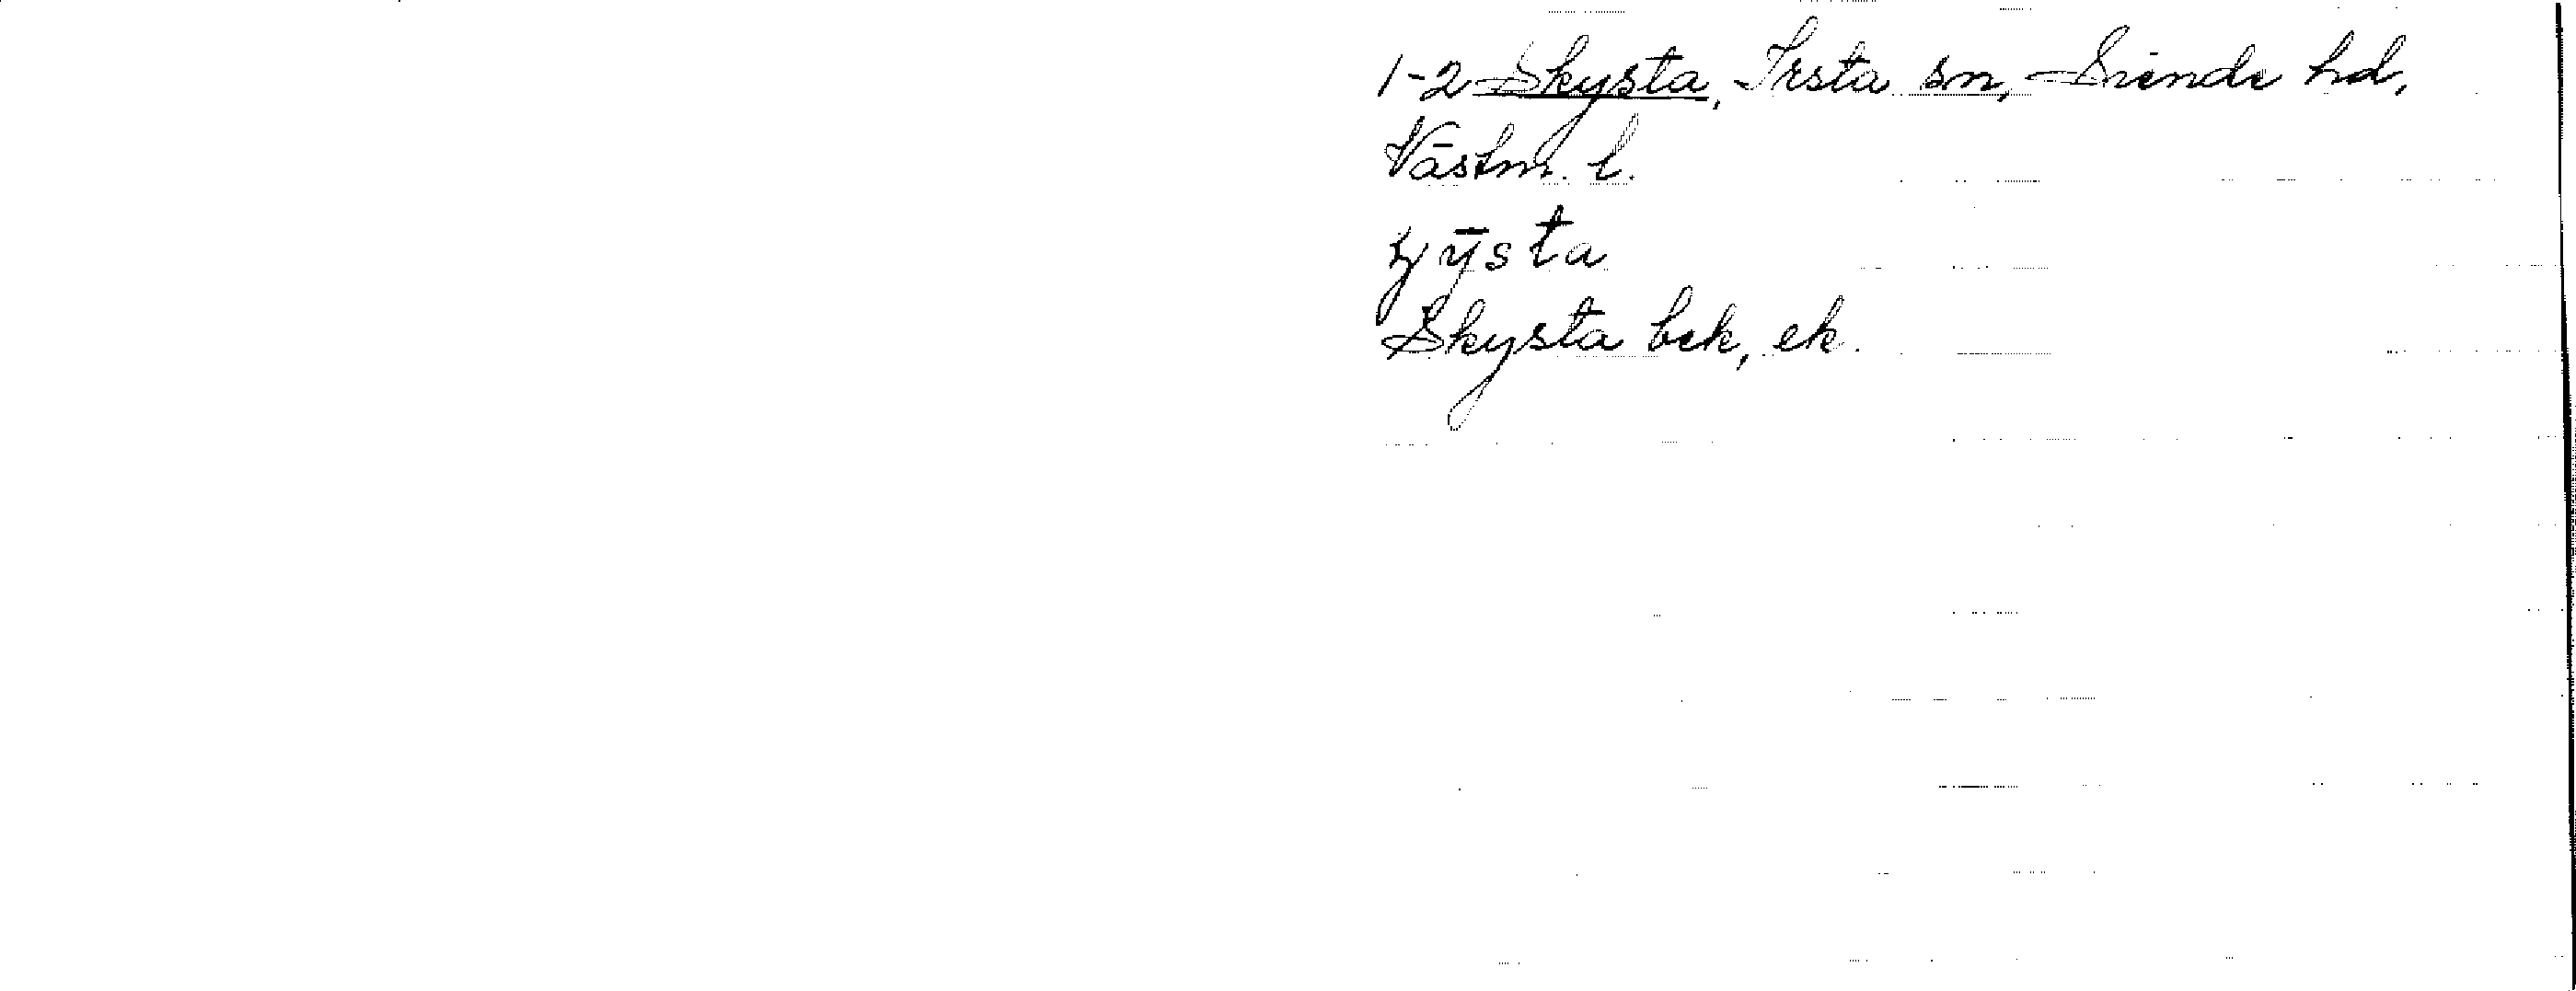 1-2 Skysta, Irsta sn, Siende hd,
Västm. l.
ȳsta
Skysta bek, ek.